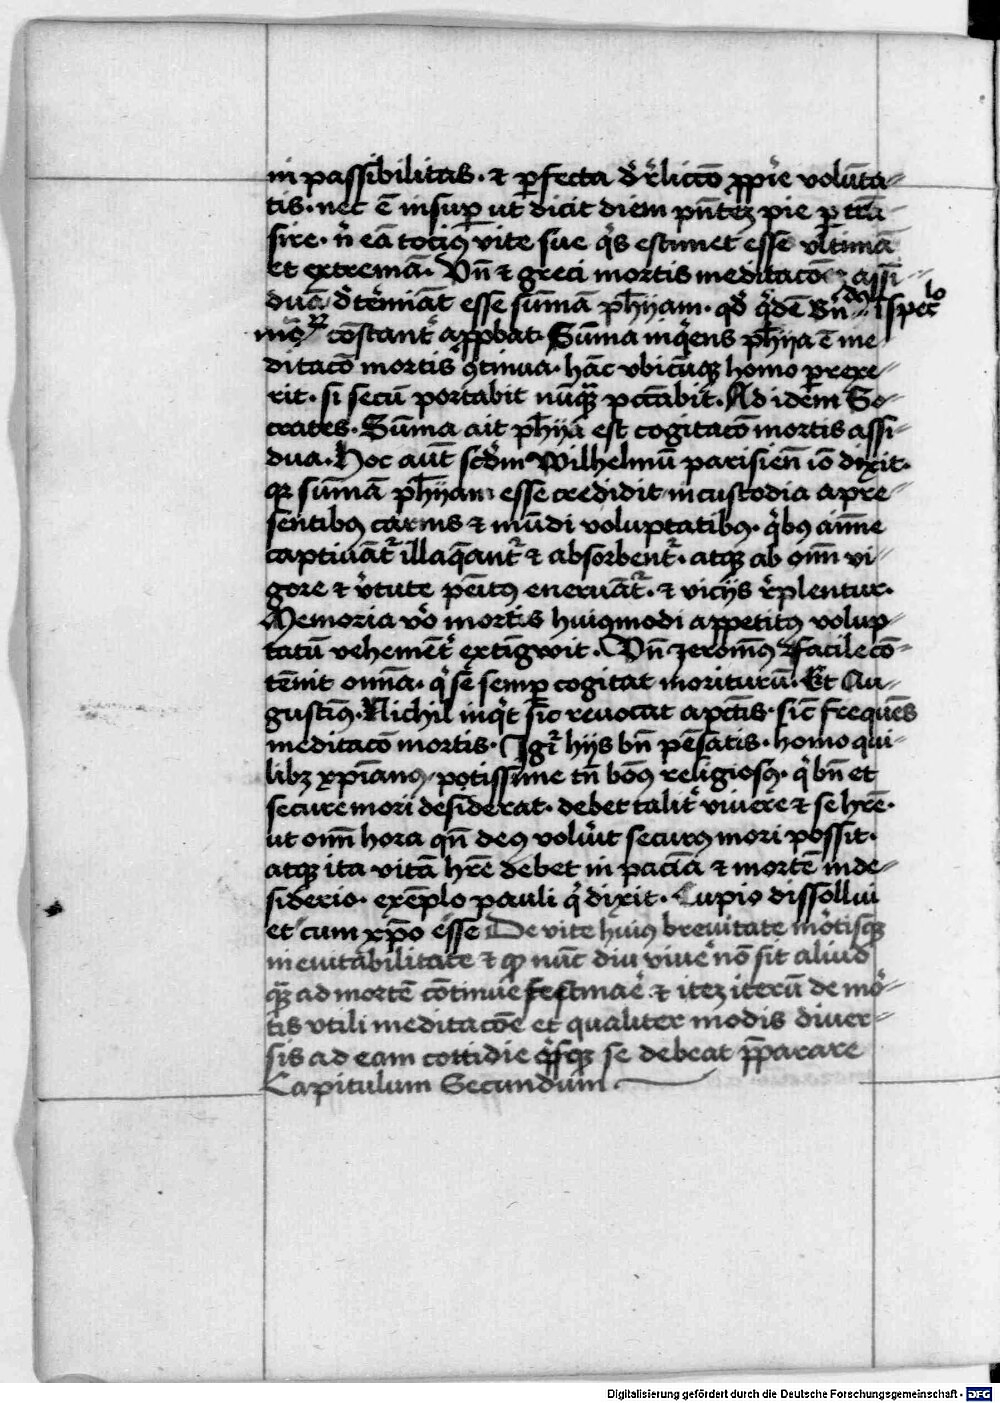 in passibilitas · et ꝑfecta dr̃liccō ꝓpͥe volūta-
tis · nec ē insuꝑ ut dicit diem pn̄teꝫ pie ꝑ trā-
sire · nͥ eā tociꝰ vite sue qͥs estimet esse vltimā
et extremā · Vn̄ et greci mortis meditacōeꝫ assi-
duā dͭermīāt esse sūmā ph̄ijam · qd̓ qͥdē Bn̄dꝰ ī spec̄lo
mōꝝ cōstantͬ aꝓbat · Sūma inqͥens ph̄ija ē me
ditacō mortis ꝯtinua · hāc vbicūqꝫ homo ꝑrexe-
rit · si secū portabit nūqꝫ pctābit · Ad idem So-
crates · Sūma ait ph̄ija est cogitacō mortis assi-
dua · Hoc aūt scd̓m Wilhelmū parisien̄ iō dixit ·
qꝛ sūmā ph̄ijam esse credidit in custodia a pre-
sentibꝰ carnis et mūdi voluptatibꝰ · qͥbꝰ aīme
captiuātͬ illaq̄antͬ et absorbentͬ · atqꝫ ab om̄i vi-
gore et vͥtute pēitꝰ eneruātͬ · et vicijs rͤplentur ·
Memoria vͦo mortis huiꝰmodi appetitꝰ volup-
tatū vehemētͬ extīgwit · Vn̄ Jeronīꝰ Facile cō-
tēnit om̄ia · qͥ sē semꝑ cogitat moriturū · Et Au-
gustīꝰ · Nichil inqͥt sic reuocat a pctīs · sic̄ frequēs
meditacō mortis · Igͬ hijs bn̄ pēsatis · homo qui-
libꝫ xp̄ianꝰ potissime tn̄ bōꝰ religiosꝰ · qͥ bn̄ et
secure mori desiderat · debet talitͬ viuere et se hr̄e ·
ut om̄i hora qn̄ deꝰ volūit securꝰ mori possit ·
atqꝫ ita vitā hr̄e debet in paciā et mortē in de-
siderio · exēplo pauli qͥ dixit · Cupio dissollui
et cum xp̄o esse De vite huiꝰ breuitate mͦtisqꝫ
ineuitabilitate et ꝙ nūc diu viuͤe nō sit aliud
qͣꝫ ad mortē cōtinue festinaͤe · et iteꝫ iterū de mͦ-
tis vtili meditacōe et qualiter modis diuer-
sis ad eam cottidie qͥsqꝫ se debeat p̄parare
Capitulum Secundum
Digitalisierung gefördert durch die Deutsche Forschungsgemeinschaft - DFG